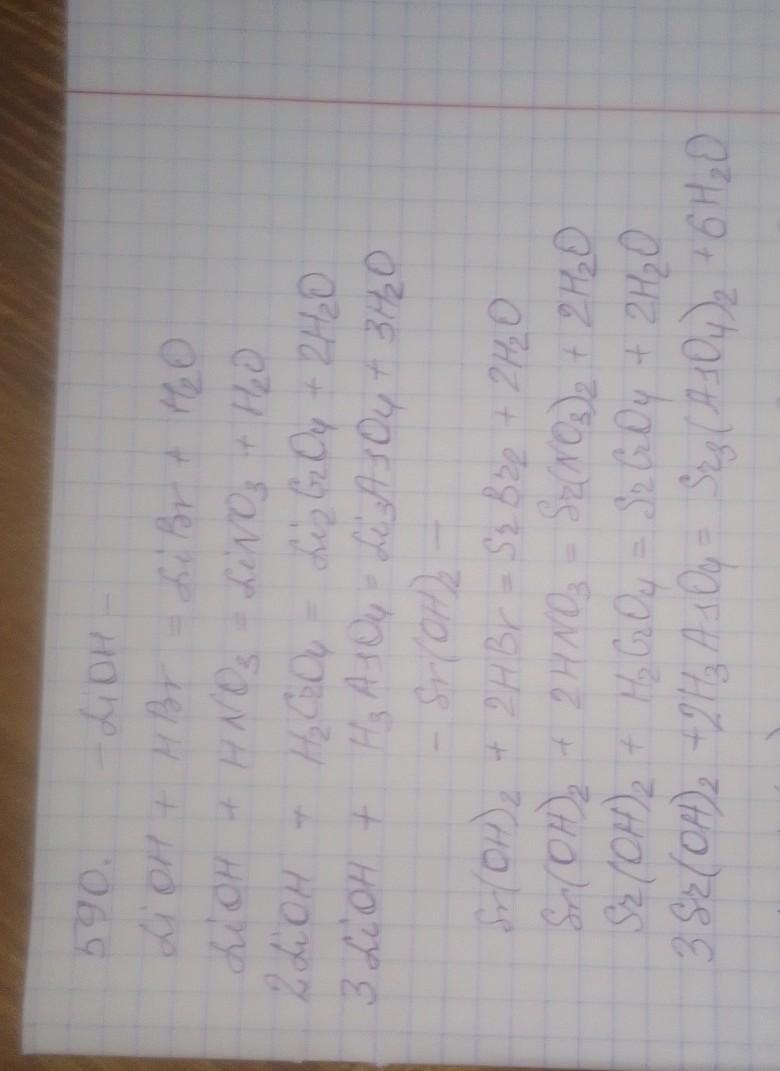 590. - LiOH -
LiOH + HBr = LiBr + H₂O
LiOH + HNO₃ = LiNO₃ + H₂O
2LiOH + H₂CrO₄ = Li₂CrO₄ + 2H₂O
3LiOH + H₃AsO₄ = Li₃AsO₄ + 3H₂O
- Sr(OH)₂ -
Sr(OH)₂ + 2HBr = SrBr₂ + 2H₂O
Sr(OH)₂ + 2HNO₃ = Sr(NO₃)₂ + 2H₂O
Sr(OH)₂ + H₂CrO₄ = SrCrO₄ + 2H₂O
3Sr(OH)₂ + 2H₃AsO₄ = Sr₃(AsO₄)₂ + 6H₂O